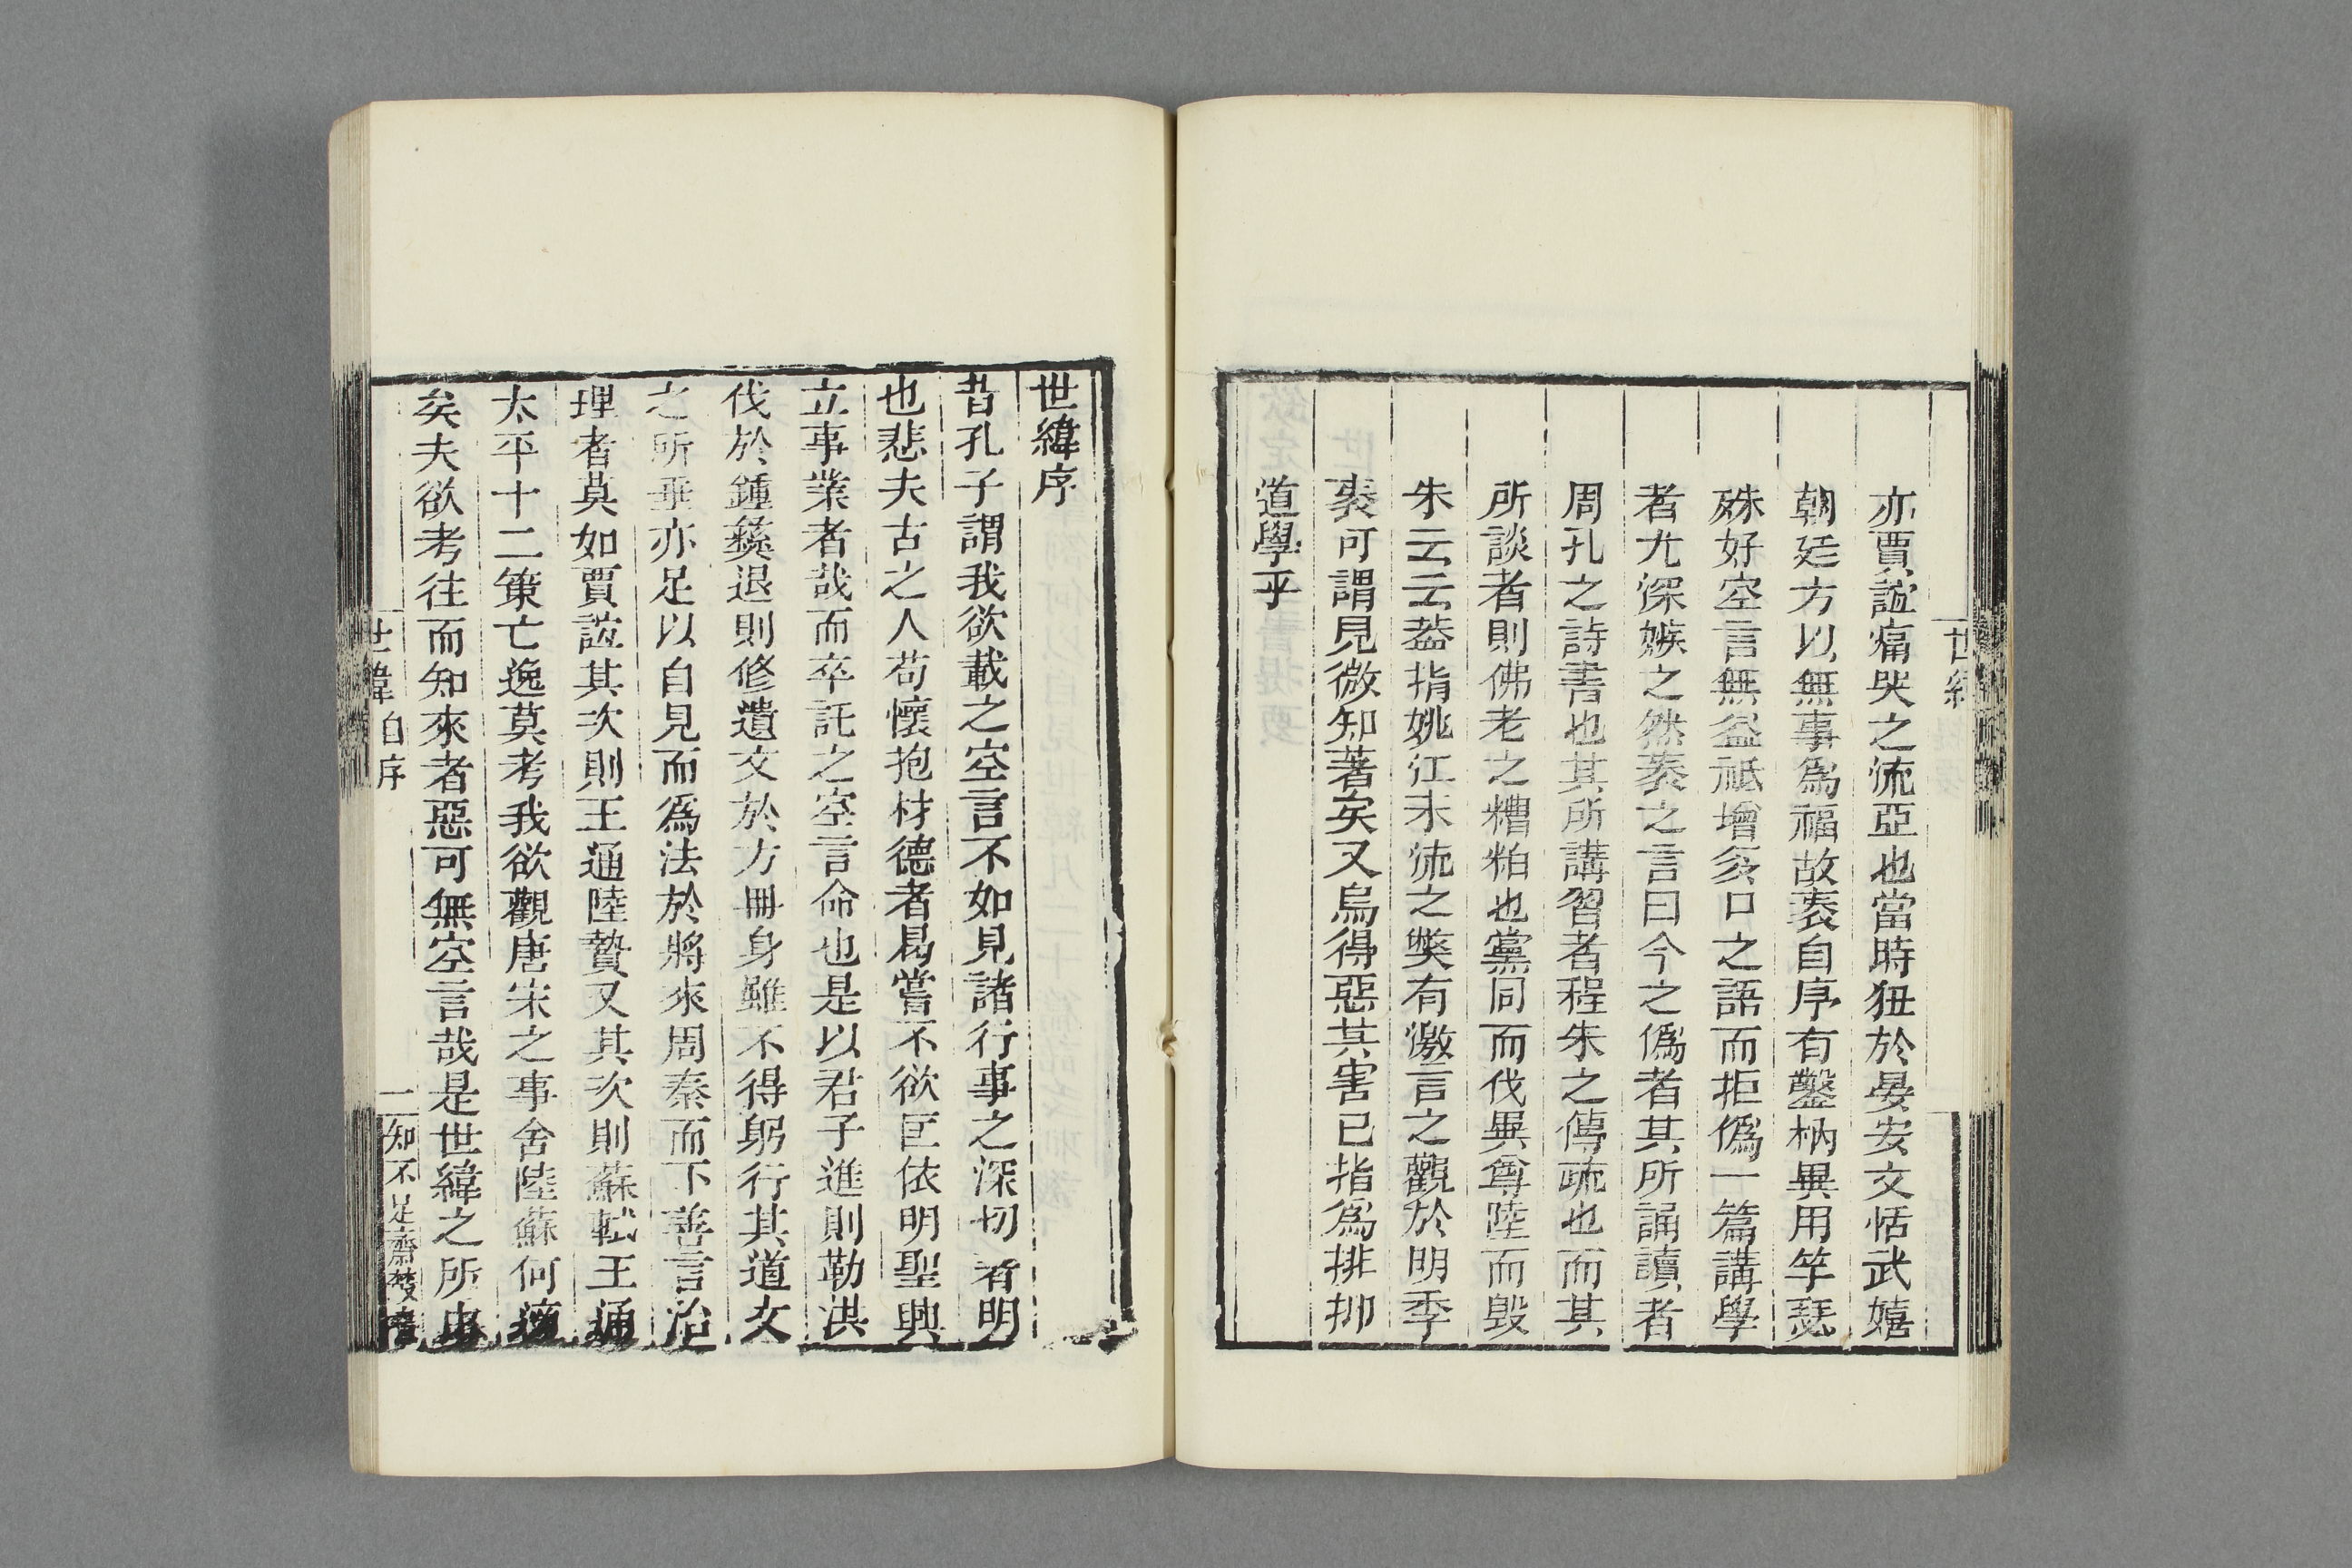 世緯
亦賈誼痛哭之流亞也當時狃於晏安文恬武嬉
朝廷方以無事爲福故袠自序有鑿枘異用竽瑟
殊好空言無益祗增多口之語而拒僞一篇講學
者尤深嫉之然袠之言曰今之僞者其所誦讀者
周孔之詩書也其所講習者程朱之傳疏也而其
所談者則佛老之糟粕也黨同而伐異尊陸而毀
朱云云葢指姚江末流之獘有激言之觀於明季
袠可謂見微知著矣又烏得惡其害己指爲排抑
道學乎
世緯序
昔孔子謂我欲載之空言不如見諸行事之深切著明
也悲夫古之人苟懷抱材德者曷嘗不欲匡依明聖興
立事業者哉而卒託之空言命也是以君子進則勒洪
伐於鍾彝退則修遺文於方冊身雖不得躬行其道文
之所垂亦足以自見而爲法於將來周秦而下善言治
理者莫如賈誼其次則王通陸贄又其次則蘇軾王通
太平十二策亡逸莫考我欲觀唐宋之事舍陸蘇何適
矣夫欲考往而知來者惡可無空言哉是世緯之所由
世緯自序
一
知不足齋叢書